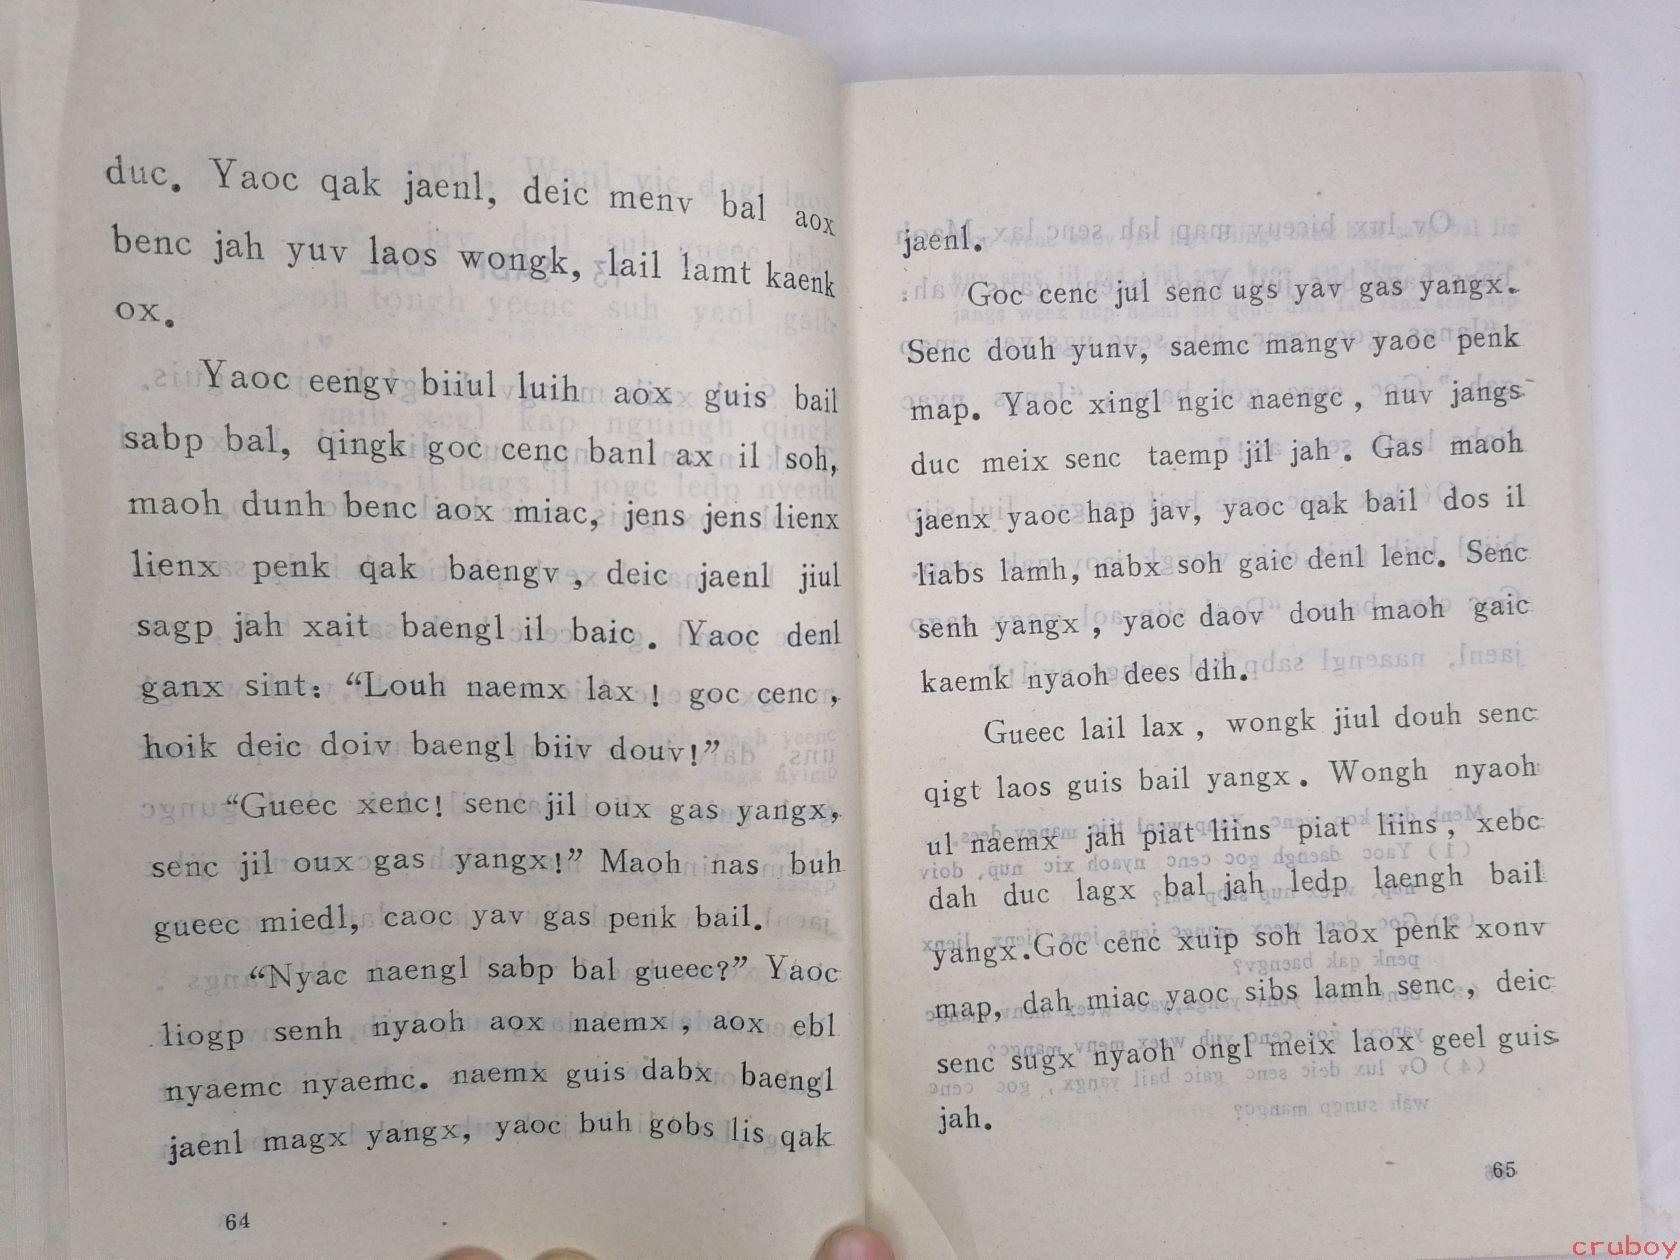 duc. Yaoc qak jaenl, deic menv bal aox
benc jah yuv laos wongk, lail lamt kaenk
ox.
Yaoc eengv biiul luih aox guis bail
sabp bal, qingk goc cenc banl ax il soh,
maoh dunh benc aox miac, jens jens lienx
lienx penk qak baengv, deic jaenl jiul
sagp jah xait baengl il baic. Yaoc denl
ganx sint: “Louh naemx lax! goc cenc,
hoik deic doiv baengl biiv douv!”
“Gueec xenc! senc jil oux gas yangx,
senc jil oux gas yangx!” Maoh nas buh
gueec miedl, caoc yav gas penk bail.
“Nyac naengl sabp bal gueec?” Yaoc
liogp senh nyaoh aox naemx, aox ebl
nyaemc nyaemc. naemx guis dabx baengl
jaenl magx yangx, yaoc buh gobs lis qak
64
jaenl.
Goc cenc jul senc ugs yav gas yangx.
Senc douh yunv, saemc mangv yaoc penk
map. Yaoc xingl ngic naengc, nuv jangs
duc meix senc taemp jil jah. Gas maoh
jaenx yaoc hap jav, yaoc qak bail dos il
liabs lamh, nabx soh gaic denl lenc. Senc
senh yangx, yaoc daov douh maoh gaic
kaemk nyaoh dees dih.
Gueec lail lax, wongk jiul douh senc
qigt laos guis bail yangx. Wongh nyaoh
ul naemx jah piat liins piat liins, xebc
dah duc lagx bal jah ledp laengh bail
yangx. Goc cenc xuip soh laox penk xonv
map, dah miac yaoc sibs lamh senc, deic
senc sugx nyaoh ongl meix laox geel guis
jah.
65
cruboy